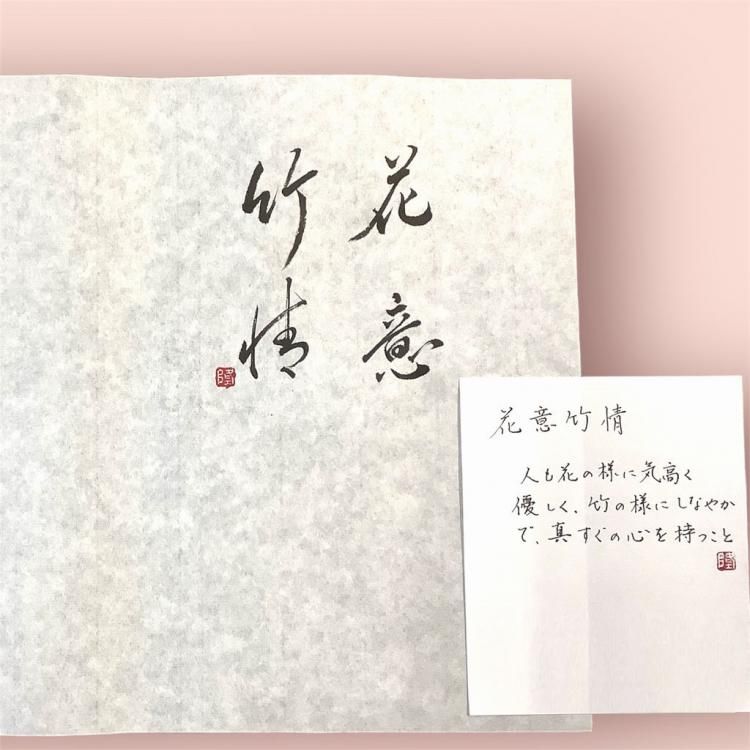 花意
竹情
花意竹情
人も花の様に気高く
優しく、竹の様にしなやか
で、真すぐの心を持つこと